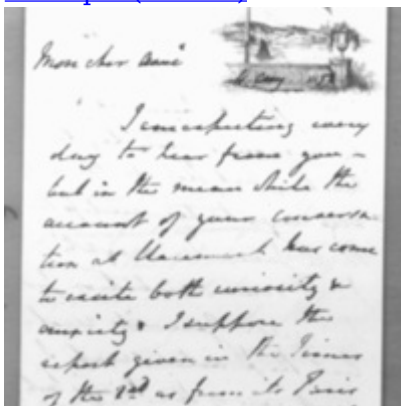 Mon cher ami
I am expecting every
day to hear from you –
but in the mean while the
account of your conversa-
tion at has come
to excite both curiosity &
anxiety & I suppose the
report given in the Times
of the 2nd as from its Paris